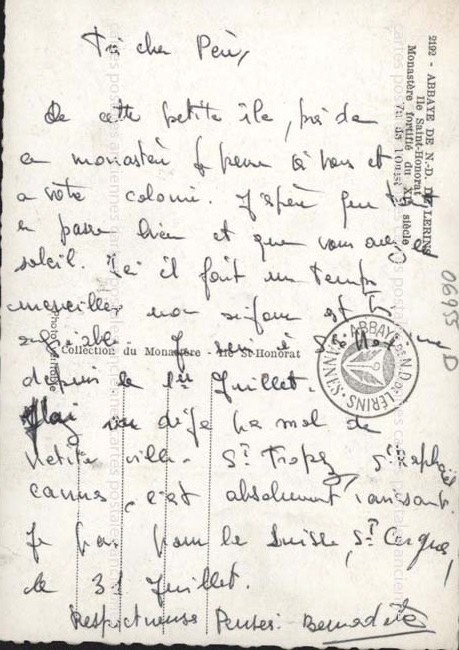 Très cher Père,
De cette petite île, près de
ce monastère je pense à vous et
à votre colonie. J'espère que tout
se passe bien et que vous avez le
soleil. Ici il fait un temps
merveilleux non
agréable. Je suis à Ste Maxime
depuis le 1er Juillet.
J'ai vu déjà pas mal de
petite ville. St Tropez, St Raphaël
Cannes, c'est absolument ravissant.
Je pars pour la Suisse, St Cergue,
le 31 Juillet.
Respectueuses Pensées. Bernadette
2192 - ABBAYE DE N.-D. DE LERINS
Ile Saint-Honorat
Monastère fortifié du XIe siècle
Collection du Monastère - Ile St-Honorat
Photo
ABBAYE DE N.D. DE LERINS
CANNES
06955 D
cartes postales anciennes